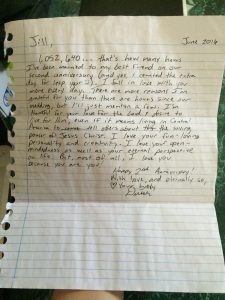 Jill,
June 2016
1,052,640... that's how many hours
I've been married to my best friend on our
second anniversary (and yes, I counted the extra
day for leap year :). I fall in love with you
more every day. There are more reasons I'm
grateful for you than there are hours since our
wedding, but I'll just mention a few. I'm
thankful for your love for the Lord & desire to
live for Him, even if it means living in Central
America to others about the saving
power of Jesus Christ. I love your fun-loving
personality and creativity. I love your open-
mindedness as well as your eternal perspective
on life. But, most of all, I love you
because you are you!
Happy 2nd Anniversary!
With love, and eternally so,
♡ Your hubby